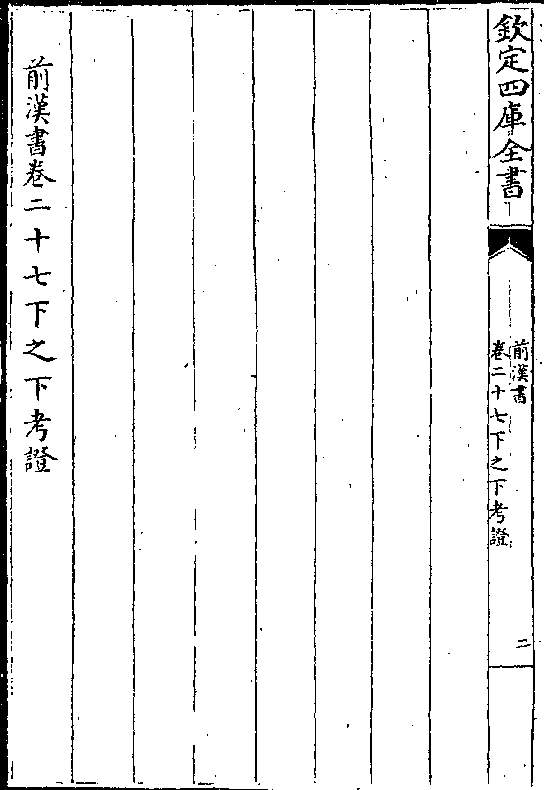 欽定四庫全書
前漢書
卷二十七下之下考證
二
前漢書卷二十七下之下考證